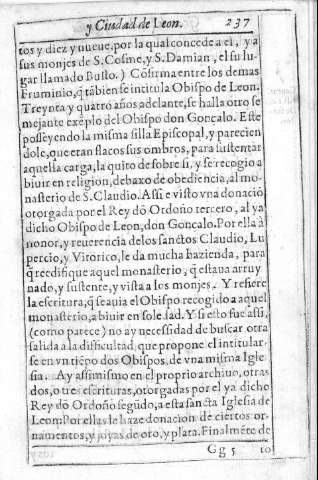 y Ciudad de Leon. 237
tos y diez y nueue, por la qual concede a el, y a
sus monjes de S. Cosme, y S. Damian, el su lu-
gar llamado Busto.) Cõfirma entre los demas
Fruminio, q̃ tãbien se intitula Obispo de Leon.
Treynta y quatro años adelante, se halla otro se
mejante exẽplo del Obispo don Gonçalo. Este
posseyendo la misma silla Episcopal, y parecien
dole, que eran flacos sus ombros, para sustentar
aquella carga, la quito de sobre si, y se recogio a
biuir en religion, debaxo de obediencia, al mo-
nasterio de S. Claudio. Assi e visto vna donaciõ
otorgada por el Rey dõ Ordoño tercero, al ya
dicho Obispo de Leon, don Gonçalo. Por ella à
honor, y reuerencia de los sanctos Claudio, Lu
percio, y Vitorico, le da mucha hazienda, para
q̃ reedifique aquel monasterio, q̃ estaua arruy
nado, y sustente, y vista a los monjes. Y refiere
la escritura, q̃ se auia el Obispo recogido a aquel
monasterio, a biuir en soledad. Y si esto fue assi,
(como parece) no ay necessidad de buscar otra
salida a la difficultad, que propone el intitular-
se en vn tiẽpo dos Obispos, de vna misma Igle
sia. Ay assimismo en el proprio archiuo, otras
dos, o tres escrituras, otorgadas por el ya dicho
Rey dõ Ordoño segũdo, a esta sancta Iglesia de
Leon: Por ellas le haze donacion de ciertos or-
namentos, y joyas de oro, y plata. Finalmẽte de
Gg 5 to